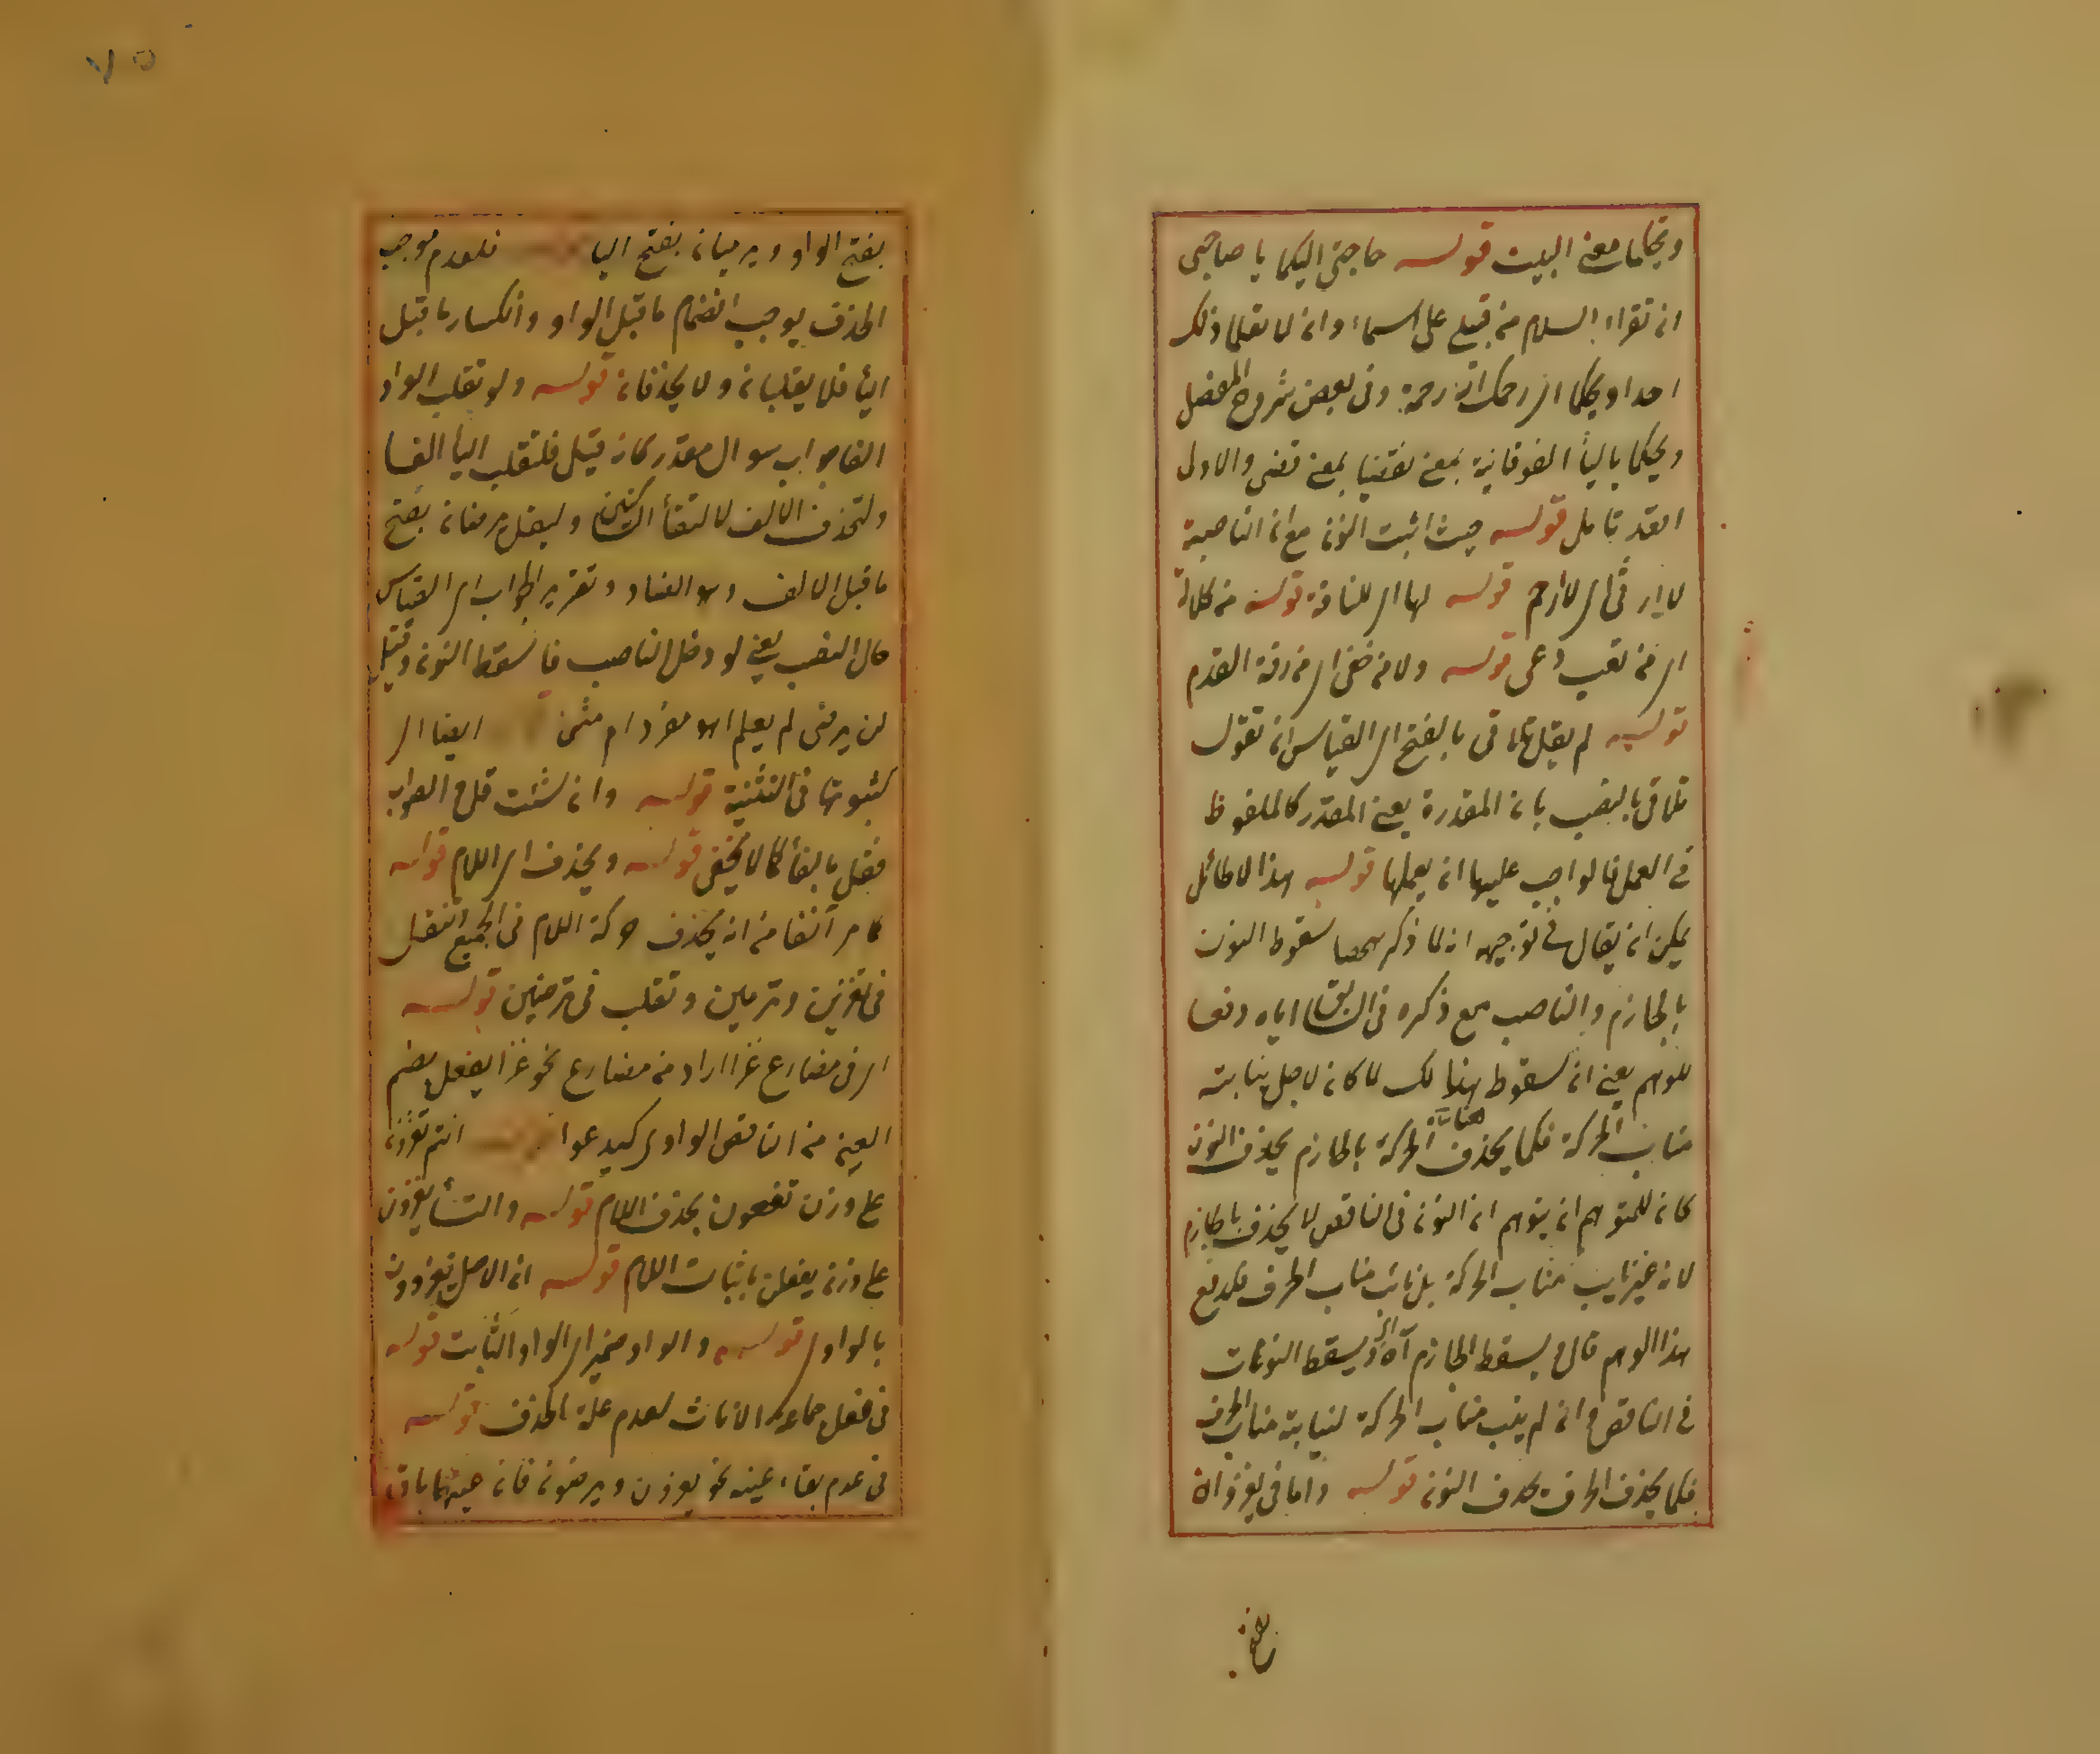 ويحكما معنى البيت قوله حاجتى اليكما يا صاحبى
ان تقراا السلام من قبلى على اسماء وان لا تعلما ذلك
احدا ويحكما اى رحمك الله رحمة وفى بعض شروح المفصل
ويحكما باليا الفوقانية بمعنى تقضيا بمعنى قضى والاول
اقعد تامل قوله حيث اثبت النون مع ان الناصبة
لا ارثى اى لا ارحم قوله لها اى للناقة قوله من كلالة
اى من تعب وعى قوله ولا من حفى اى من رقة القدم
قوله لم يقل تلاقى بالفتح اى القياس ان تقول
تلاقى بالنصب بان المقدرة يعنى المقدر كالملفوظ
فى العمل فالواجب عليها ان يعملها قوله هذا لا طائل
يمكن ان يقال فى توجيهه انه لما ذكر ههنا سقوط النون
بالجازم والناصب مع ذكره فى السابق اياه دفعا
للوهم يعنى ان سقوط هنالك لما كان لاجل نيابته
مناب الحركة فكما يحذف الحركة بالجازم يحذف النون هنا
كان للمتوهم ان يتوهم ان النون فى الناقص لا يحذف بالجازم
لانه غير نايب مناب الحركة بل نائب مناب الحرف فلدفع
هذا الوهم قال ويسقط الجازم آه اى ويسقط النونات
فى الناقص وان لم ينب مناب الحركة لنيابة مناب الحرف
فكما يحذف الحرف يحذف النون قوله واما فى يغزوان
بفتح الواو ويرميان بفتح اليا فلعدم موجب
الحذف يوجب انضمام ما قبل الواو وانكسار ما قبل
اليأ فلا يقلبان ولا يحذفان قوله ولو تقلب الواو
الفا جواب سوال مقدر كانه قيل فلتقلب اليا الفا
ولتحذف الالف لالتقأ الساكنين وليقل يرضان بفتح
ما قبل الالف وهو الضاد وتقرير الجواب اى القياس
حال النصب يعنى لو دخل الناصب فاسقط النون وقيل
لن يرضى لم يعلم اهو مفرد ام مثنى ايضا اى
كثبوتها فى التثنية قوله وان شئت قل و الصواب
فقل بالفأ كما لا يخفى قوله ويحذف اى اللام قوله
كما مر آنفا من انه يحذف حركة اللام فى الجميع وتنقل
فى تغزين وترمين وتقلب فى ترضين قوله
اى فى مضارع غزا اراد من مضارع نحو غزا يفعل بضم
العين من الناقص الواوى كيدعوا انتم تغزون
على وزن تفعون بحذف اللام قوله والنسأ يغزون
على وزن يفعلن باثبات اللام قوله ان الاصل تغزوون
بالواو قوله والواو ضمير اى الواو الثابت قوله
فى فعل جماعة الاناث لعدم علة الحذف قوله
فى عدم بقاء عينه نحو يغزون ويرضون فان عينهما باق